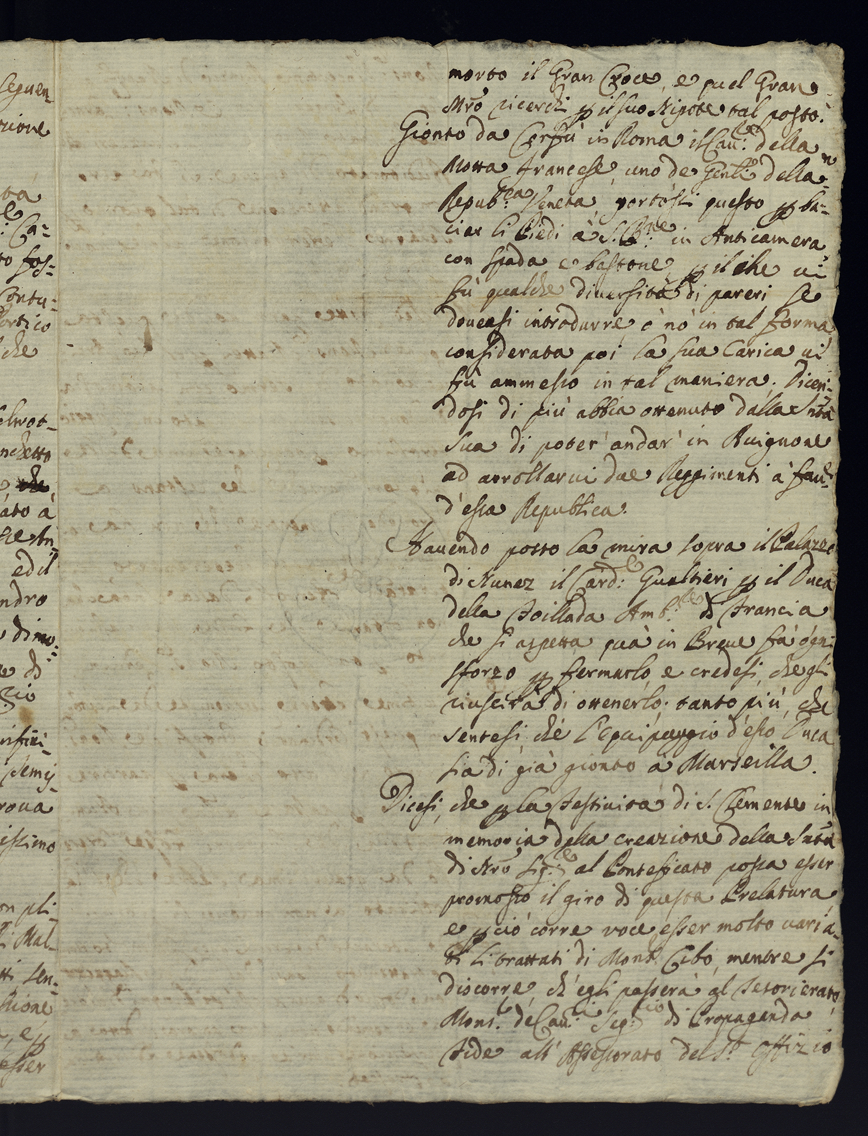 seguen-
zione
ta
: Ca-
to fos-
Contu-
ortico
che
nchetto
ato à
ed il
ndro
dimo-
di
cio
semij
rova
issimo
on pli-
Mal-
tti sen-
sser
morto il Gran Croce, e quel Gran
Mro ricerchi p il suo Nipote tal posto.
Gionto da Corfù in Roma il Cau.re della
Motta francese, uno de Genli della
Repub.ca Veneta, portossi questo p ba-
ciar li Piedi à S. B.ne in Anticamera
con spada e bastone p il che ui
fù qualche diuersità di pareri se
doueasi introdurre ò nò in tal forma
considerata poi la sua Carica ui
fù ammesso in tal maniera. Dicen-
dosi di più abbia ottenuto dalla Sntà
Sua di poter' andar' in Auignone
ad arrollarui due Reggimenti à fau.re
d'essa Republica.
Hauendo posto la mira sopra il Palazzo
di Nunez il Card.le Gualtieri p il Duca
della Foillada Amb.re di Francia
che si aspetta quà in Breue fà ogni
sforzo p fermarlo, e credesi, che gli
riuscirà di ottenerlo; tanto più, che
sentesi che l'equipaggio d'esso Duca
sia di già gionto à Marseilla.
Dicesi, che p la Festiuità di S. Clemente in
memoria della creazione della Sntà
di Nro Sig.re al Pontefficato possa esser
promosso il giro di questa Prelatura
e p ciò corre voce esser molto uaria-
ti li trattati di Mons. Cibo, mentre si
discorre, ch'egli passerà al Tesorierato
Mons.r de Cau.ri Seg.rio di Propaganda
Fide all' Assessorato del S.to Offizio